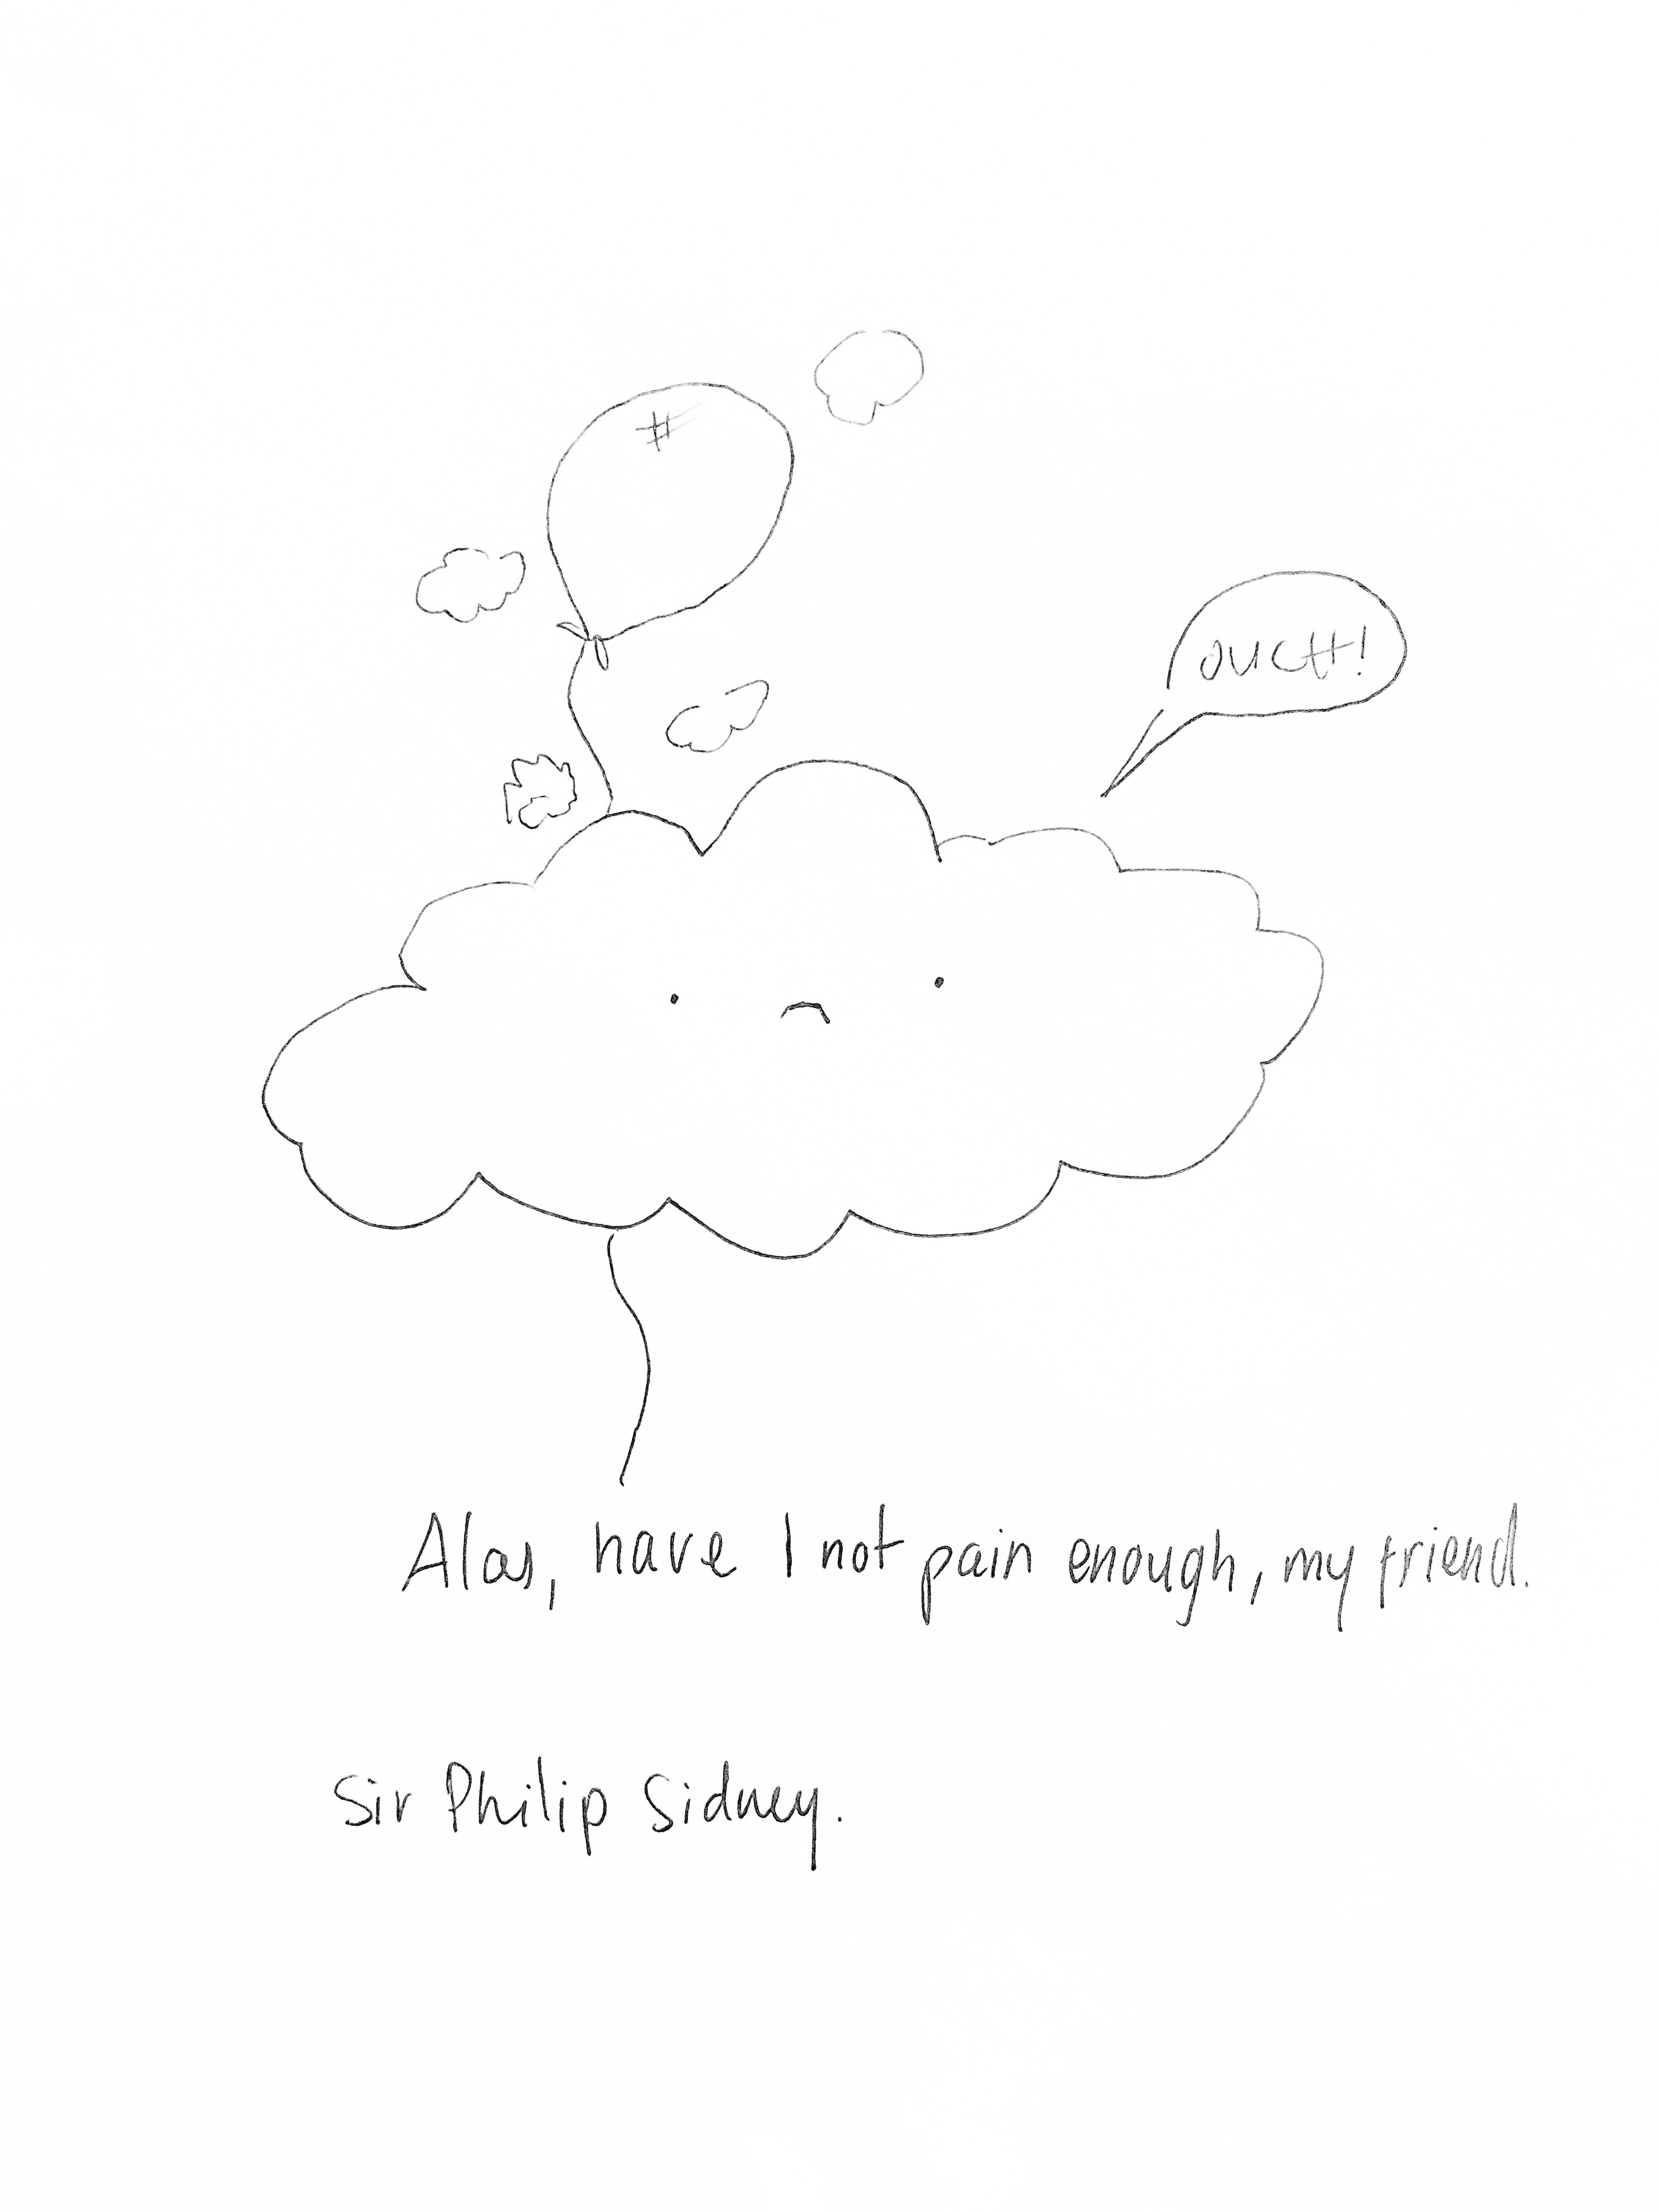 OUCH!
Alas, have I not pain enough, my friend.
Sir Philip Sidney.